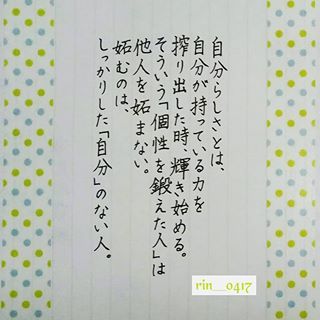 自分らしさとは、
自分が持っている力を
搾り出した時、輝き始める。
そういう「個性を鍛えた人」は
他人を妬まない。
妬むのは、
しっかりした「自分」のない人。
rin__0417